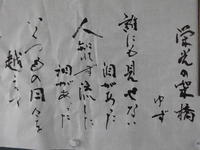 栄光の架橋
ゆず
誰にも見せない
泪があった
人知れず流した
泪があった
いくつもの日々を
越えて